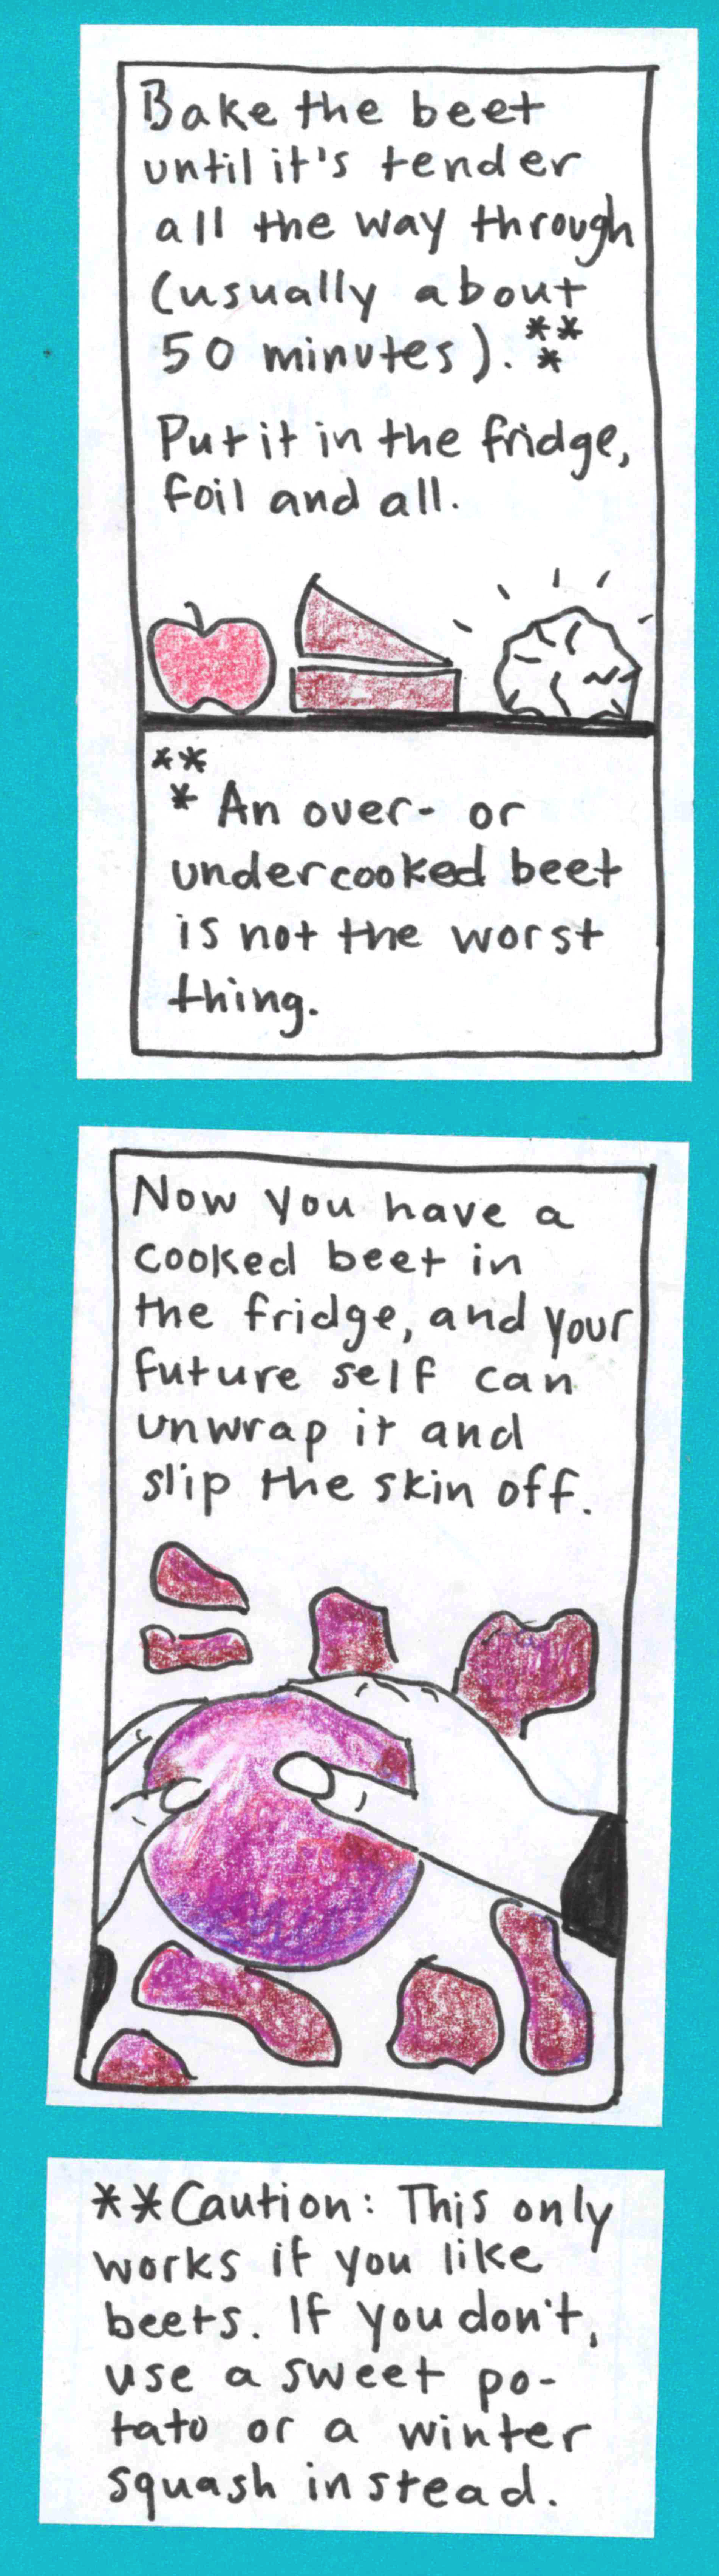 Bake the beet
until it's tender
all the way through
(usually about
50 minutes). ***
Put it in the fridge,
foil and all.
***
An over- or
undercooked beet
is not the worst
thing.
Now you have a
cooked beet in
the fridge, and your
future self can
unwrap it and
slip the skin off.
**Caution: This only
works if you like
beets. If you don't,
use a sweet po-
tato or a winter
squash instead.